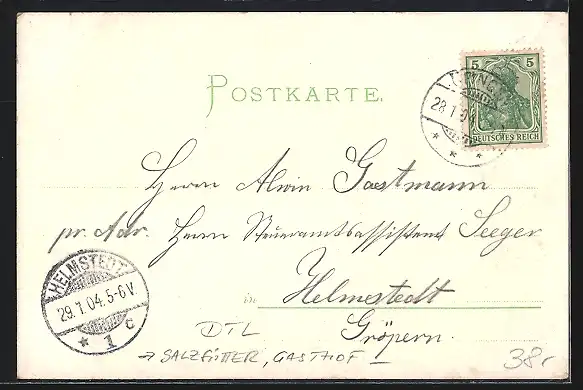 5 5
DEUTSCHES REICH
28.1.0
POSTKARTE.
Herrn Alwin Gastmann
pr. Adr. Herrn Steueramtsassistent Seeger
in Helmestedt
Gröpern.
HELMSTEDT
29.1.04.5-6V.
* 1 c
DTL
→ SALZFUTTER, GASTHOF
38,-